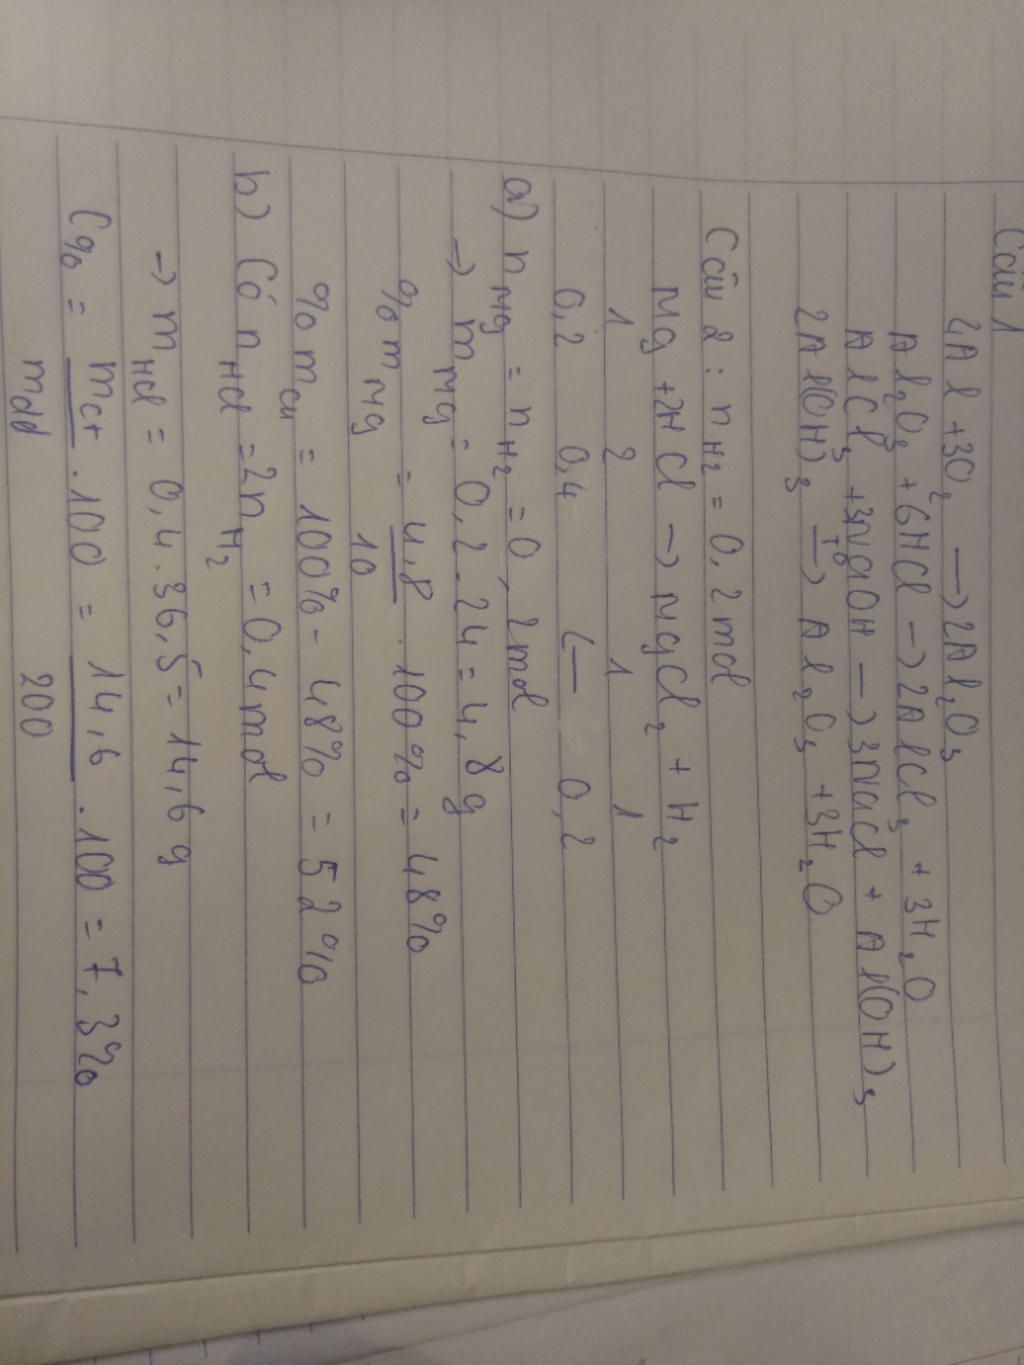 Câu 1
4Al + 3O₂ → 2Al₂O₃
Al₂O₃ + 6HCl → 2AlCl₃ + 3H₂O
AlCl₃ + 3NaOH → 3NaCl + Al(OH)₃
2Al(OH)₃ →(T°) Al₂O₃ + 3H₂O
Câu 2: nH₂ = 0,2 mol
Mg + 2HCl → MgCl₂ + H₂
1 2 1 1
0,2 0,4 ← 0,2
a) nMg = nH₂ = 0,2 mol
→ mMg = 0,2 . 24 = 4,8 g
%mMg = 4,8/10 . 100% = 48%
%mCu = 100% - 48% = 52%
b) Có nHCl = 2nH₂ = 0,4 mol
→ mHCl = 0,4 . 36,5 = 14,6 g
C% = mct/mdd . 100 = 14,6/200 . 100 = 7,3%